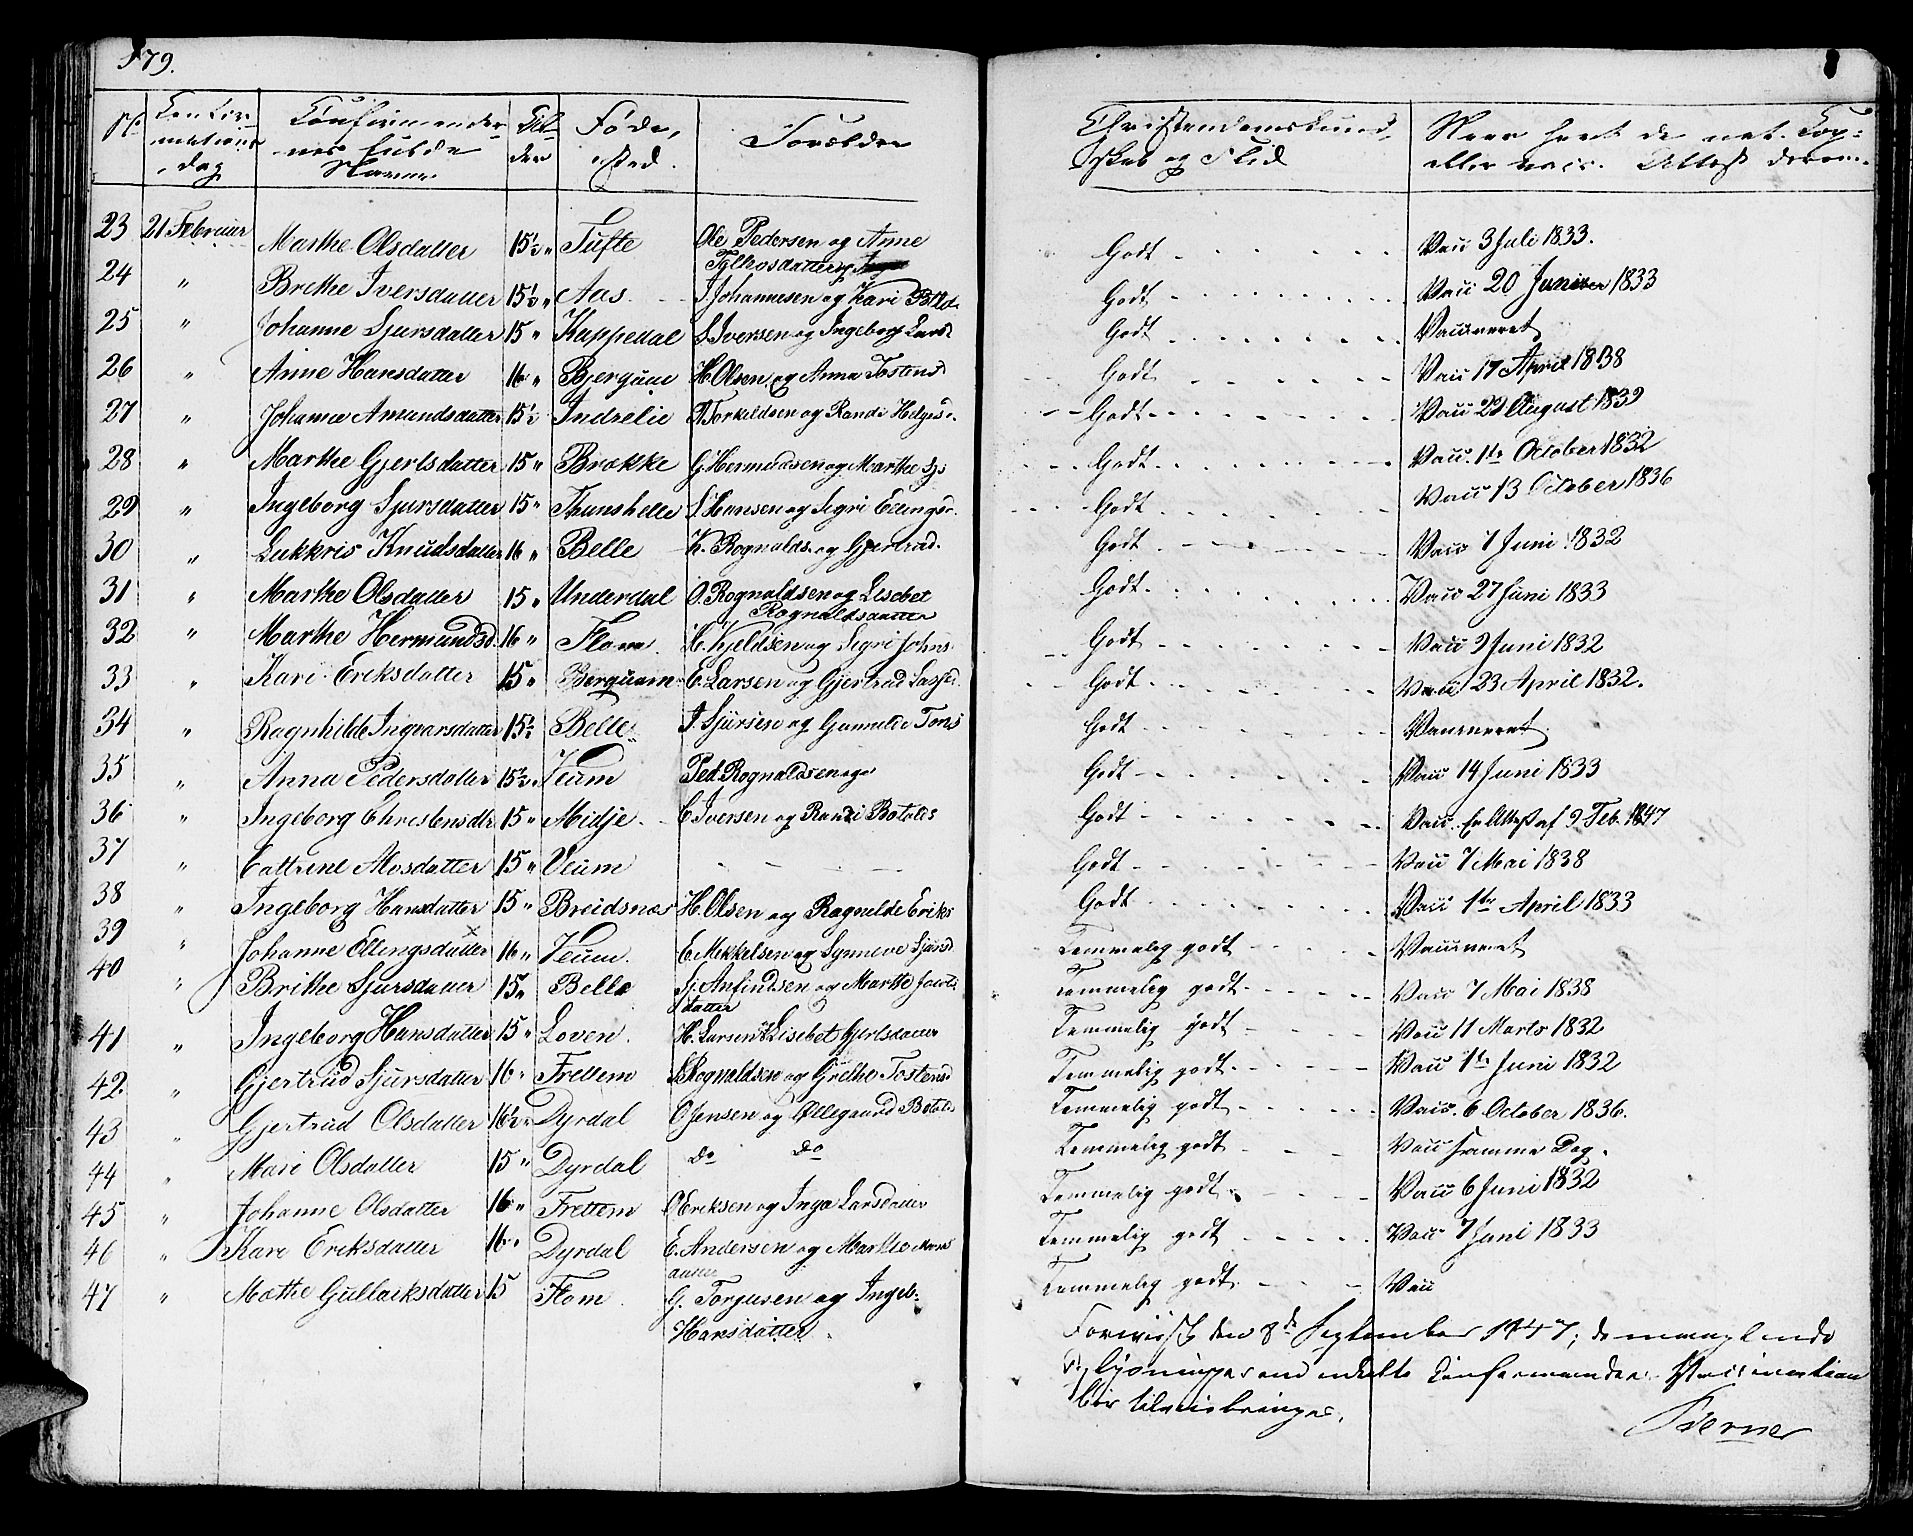 579.
No Confir= Confirmander= Al= Føde, Forældre Christendomskund, Naar havt de nat. Kop=
mations nes fulde der sted. skab og Flid eller vacc. Attest derom.
dag Navne
23 21 Februar Marthe Olsdatter 15½ " Tufte Ole Pedersen og Anne Godt Vacc 3 Juli 1833.
24 " Brithe Iversdatter 15½ " Aas I Johannesen og Kari Godt Vacc 20 Juni 1833
25 " Johanne Sjursdatter 15 " Kappedal S. Iversen og Ingeborg Larsd Godt Vaccineret
26 " Anne Hansdatter 16 " Bjergum H Olsen og Anna Tostensd Godt Vacc 17 April 1838
27 " Johanne Amundsdatter 15½ Indrelie A Torkildsen og Randi Helgesd. Godt Vacc 22 August 1839
28 " Marthe Gjerlsdatter 15 " Brække G. Hermundsen og Marthe Godt Vacc. 1te October 1832
29 " Ingeborg Sjursdatter 15 " Thunshelle S. Hansen og Sigri Ellingsd. Godt Vacc 13 October 1836
30 " Lukkris Knudsdatter 16 " Belle K. Rognalds. og Gjertrud. Godt Vacc 7 Juni 1832
31 " Marthe Olsdatter 15 " Underdal O. Rognaldsen og Lisebet Godt Vacc 27 Juni 1833
Rognaldsdatter
32 " Marthe Hermundsd. 16 " Flom H. Kjeldsen og Sigri Johns Godt Vacc 9 Juni 1832
33 " Kari Eriksdatter 15 " Berquam E. Larsen og Gjertrud Lassed. Godt Vacc 23 April 1832.
34 " Ragnhilde Ingvarsdatter 15½ Belle I. Sjursen og Gunnilde Tores Godt Vaccineret
35 " Anna Pedersdatter 15½ " Veum Ped. Rognaldsen og Godt Vacc 14 Juni 1833
36 " Ingeborg Christensdtr 15 " Midje C Iversen og Randi Botolds Godt Vacc. Attest af 9 Feb. 1847
37 " Cattrine Mosdatter 15 " Veum Godt Vacc 7 Mai 1838
38 " Ingeborg Hansdatter 15 " Breidsnæs H. Olsen og Ragnilde Eriks Godt Vacc 1te April 1833
39 " Johanne Ellingsdatter 16 " Veum. E Mikkelsen og Synneve Sjursd Temmelig godt Vaccineret
40 " Brithe Sjursdatter 15 " Belle Sj. Anfindsen og Marthe Temmelig godt Vacc 7 Mai 1838
datter
41 " Ingeborg Hansdatter 15 " Loven. H. Larsen & Lisebet Gjerlsdatter Temmelig godt Vacc 11 Marts 1832
42 " Gjertrud Sjursdatter 16 " Frettem S Rognaldsen og Grethe Tostensd Temmelig godt Vacc 1te Juni 1832
43 " Gjertrud Olsdatter 16½ " Dyrdal O Jensen og Øllegaard Botolds Temmelig godt Vacc. 6 October 1836.
44 " Mari Olsdatter 15 " Dyrdal do do Temmelig godt Vacc samme Dag.
45 " Johanne Olsdatter 16 " Frettem O Eriksen og Inga Larsdatter Temmelig godt Vacc 6 Juni 1832
46 " Kari Eriksdatter 16 " Dyrdal E. Andersen og Marthe Mons Temmelig godt Vacc 7 Juni 1833
datter
47 " Mathe Gullaiksdatter 15 Flom G. Torjusen og Ingeb= Temmelig godt Vacc
Hansdatter
Forevist den 8de September 1847; de manglende
Oplysninger om enkelte Confirmanders Vaccination
bør tilveiebringes.